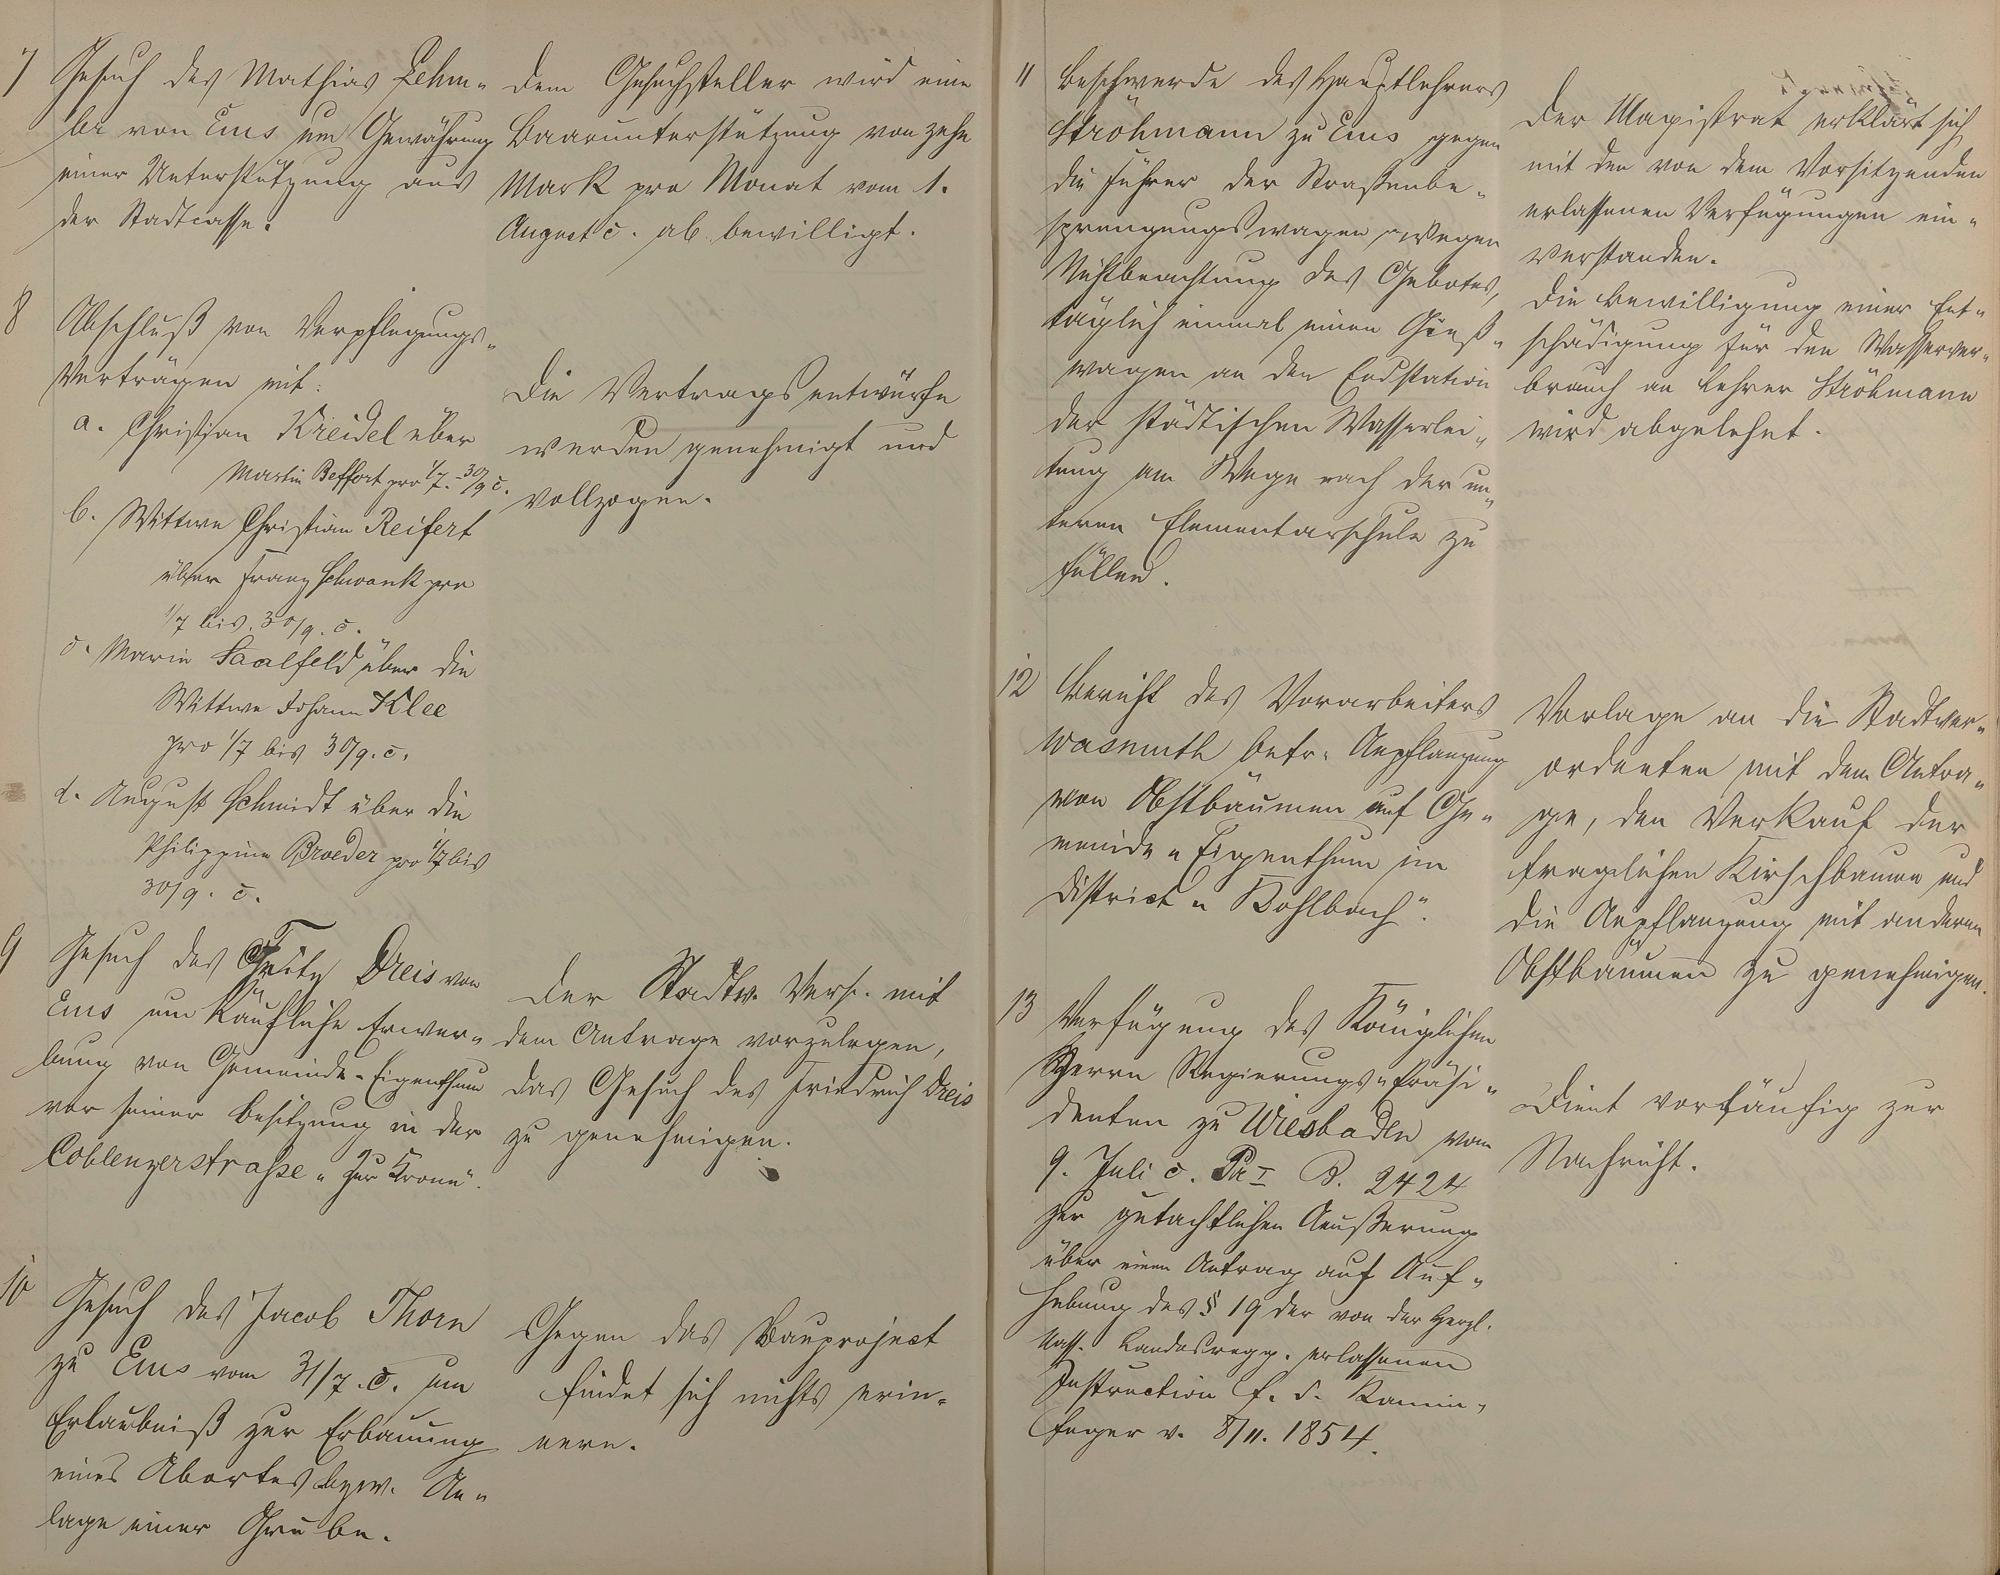 7
Gesuch des Mathias Lehm-
ler von Ems um Gewährung
einer Unterstützung aus
der Stadtcasse.
Dem Gesuchsteller wird eine
Baarunterstützung von zehn
Mark pro Monat vom 1.
August c. ab bewilligt.
8
Abschluß von Verpflegungs-
Verträgen mit:
a. Christian Kreidel über
Martin Beffort pro 1/7.-30/9 c.
b. Wittwe Christian Reifert
über Franz Schwank pro
1/7 bis 30/9. c.
c. Marie Saalfeld über die
Wittwe Johann Klee
pro 1/7 bis 30/9. c.
d. August Schmidt über die
Philippine Broeder pro 1/7 bis
30/9. c.
Die Vertragsentwürfe
werden genehmigt und
vollzogen.
9
Gesuch des Fritz Dreis von
Ems um käufliche Erwer-
bung von Gemeinde-Eigenthum
vor seiner Besitzung in der
Coblenzerstraße "Zur Krone".
Der Stadtv. Vers. mit
dem Antrage vorzulegen,
das Gesuch des Friedrich Dreis
zu genehmigen.
10
Gesuch des Jacob Thorn
zu Ems vom 31/7. c. um
Erlaubniß zur Erbauung
eines Abortes bzw. An-
lage einer Grube.
Gegen das Bauproject
findet sich nichts erin-
nern.
11
Beschwerde des Hauptlehrers
Ströhmann zu Ems gegen
die Führer der Straßenbe-
sprengungswagen wegen
Nichtbeachtung des Gebotes,
täglich einmal einen Gieß-
wagen an den Endstation
der städtischen Wasserlei-
tung am Wege nach der un-
teren Elementarschule zu
füllen.
Der Magistrat erklärt sich
mit den von dem Vorsitzenden
erlassenen Verfügungen ein-
verstanden.
Die Bewilligung einer Ent-
schädigung für den Wasserver-
brauch an Lehrer Ströhmann
wird abgelehnt.
12
Bericht des Vorarbeiters
Wasmuth betr. Anpflanzung
von Obstbäumen auf Ge-
meinde-Eigenthum im
District "Kohlbach".
Vorlage an die Stadtver-
ordneten mit dem Antra-
ge, den Verkauf der
fraglichen Kirschbäume und
die Anpflanzung mit anderen
Obstbäumen zu genehmigen.
13
Verfügung des Königlichen
Herrn Regierungs-Präsi-
denten zu Wiesbaden vom
9. Juli c. Pr. I B. 2424
zur gutachtlichen Aeußerung
über einen Antrag auf Auf-
hebung des § 19 der von der Herzl.
Nass. Landesregg. erlassenen
Instruction f. d. Kamin-
feger v. 8/11. 1854.
Dient vorläufig zur
Nachricht.